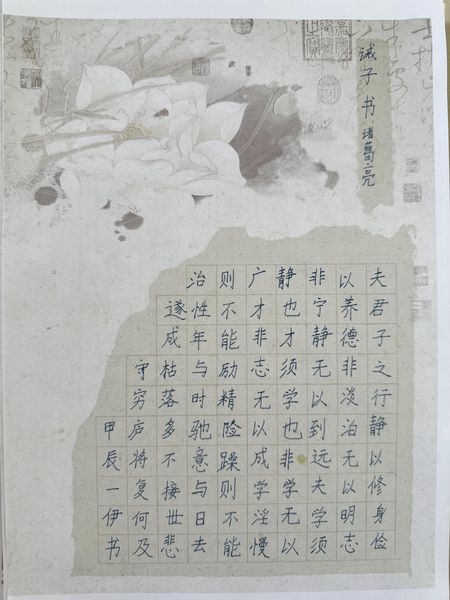 诫子书 诸葛亮
夫君子之行静以修身俭
以养德非淡泊无以明志
非宁静无以到远夫学须
静也才须学也非学无以
广才非志无以成学淫慢
则不能励精险躁则不能
治性年与时驰意与日去
遂成枯落多不接世悲
守穷庐将复何及
甲辰一伊书